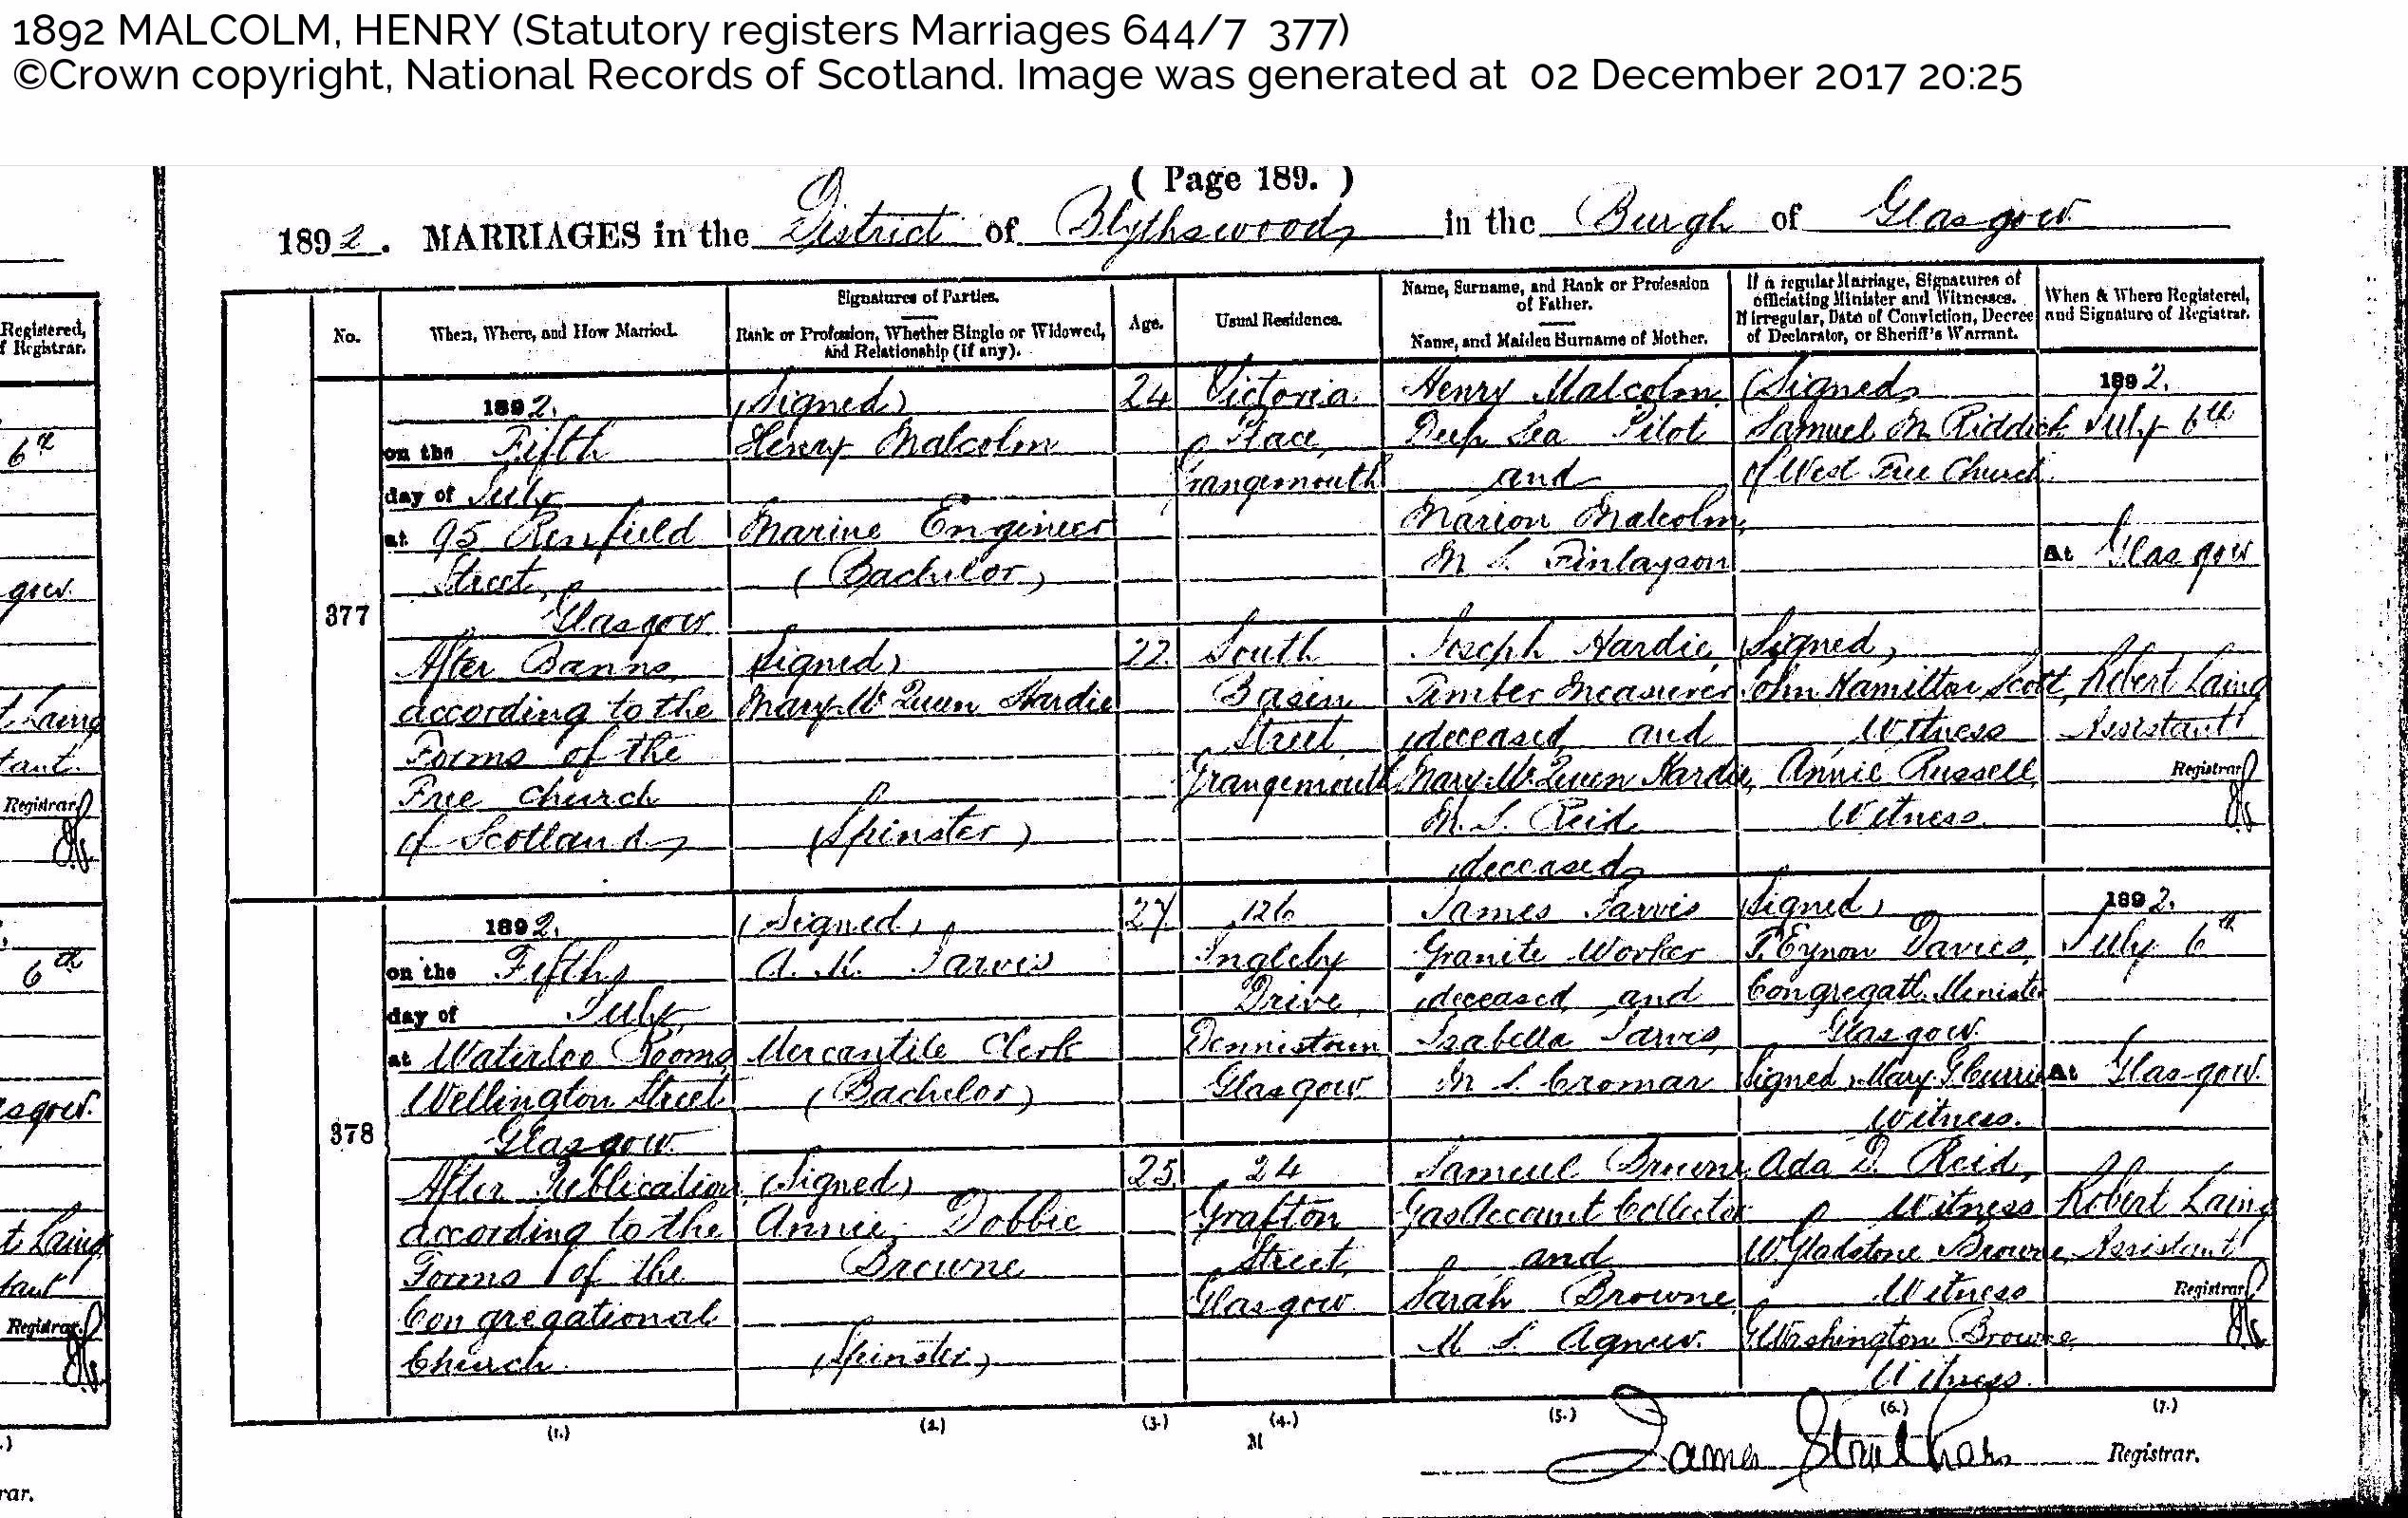 1892 MALCOLM, HENRY (Statutory registers Marriages 644/7 377)
©Crown copyright, National Records of Scotland. Image was generated at 02 December 2017 20:25
( Page 189. )
1892. MARRIAGES in the District of Blythswood in the Burgh of Glasgow
No.
When, Where, and How Married.
Signatures of Parties.
Rank or Profession, Whether Single or Widowed,
and Relationship (if any).
Age.
Usual Residence.
Name, Surname, and Rank or Profession
of Father.
Name, and Maiden Surname of Mother.
If a regular Marriage, Signatures of
officiating Minister and Witnesses.
If irregular, Date of Conviction, Decree
of Declarator, or Sheriff's Warrant.
When & Where Registered,
and Signature of Registrar.
377
1892.
on the Fifth
day of July
at 95 Renfield
Street,
Glasgow
After Banns,
according to the
Forms of the
Free Church
of Scotland
(Signed)
Henry Malcolm
Marine Engineer
(Bachelor)
(Signed)
Mary McQueen Hardie
(Spinster)
24
22
Victoria
Place,
Grangemouth
South
Basin
Street
Grangemouth
Henry Malcolm
Deep Sea Pilot
and
Marion Malcolm,
M. S. Finlayson
Joseph Hardie,
Timber Measurer
(deceased) and
Mary McQueen Hardie,
M. S. Reid
(deceased)
(Signed)
Samuel M Riddick
of West Free Church
(Signed)
John Hamilton Scott,
Witness
Annie Russell,
Witness.
1892.
July 6th
At Glasgow
Robert Laing
Assistant
Registrar
378
1892.
on the Fifth
day of July,
at Waterloo Rooms,
Wellington Street
Glasgow
After Publication
according to the
Forms of the
Congregational
Church.
(Signed)
A. K. Jarvis
Mercantile Clerk
(Bachelor)
(Signed)
Annie Dobbie
Browne
(Spinster)
27
25
126
Ingleby
Drive,
Dennistoun
Glasgow
24
Grafton
Street,
Glasgow
James Jarvis
Granite Worker
(deceased) and
Isabella Jarvis,
M. S. Cromar
Samuel Browne
Gas Account Collector
and
Sarah Browne
M. S. Agnew.
(Signed)
T. Eynon Davies,
Congregatl. Minister
Glasgow.
(Signed) Mary G Currie
Witness.
Ada D. Reid,
Witness
W. Gladstone Browne,
Witness
G. Washington Browne,
Witness.
1892.
July 6th
At Glasgow.
Robert Laing
Assistant
Registrar
(1.) (2.) (3.) (4.) (5.) (6.) (7.)
M
James Struthers Registrar.
Registered,
f Registrar.
6th
gow.
t Laing
tant.
Registrar
6th
asgow.
t Laing
tant
Registrar
rar.